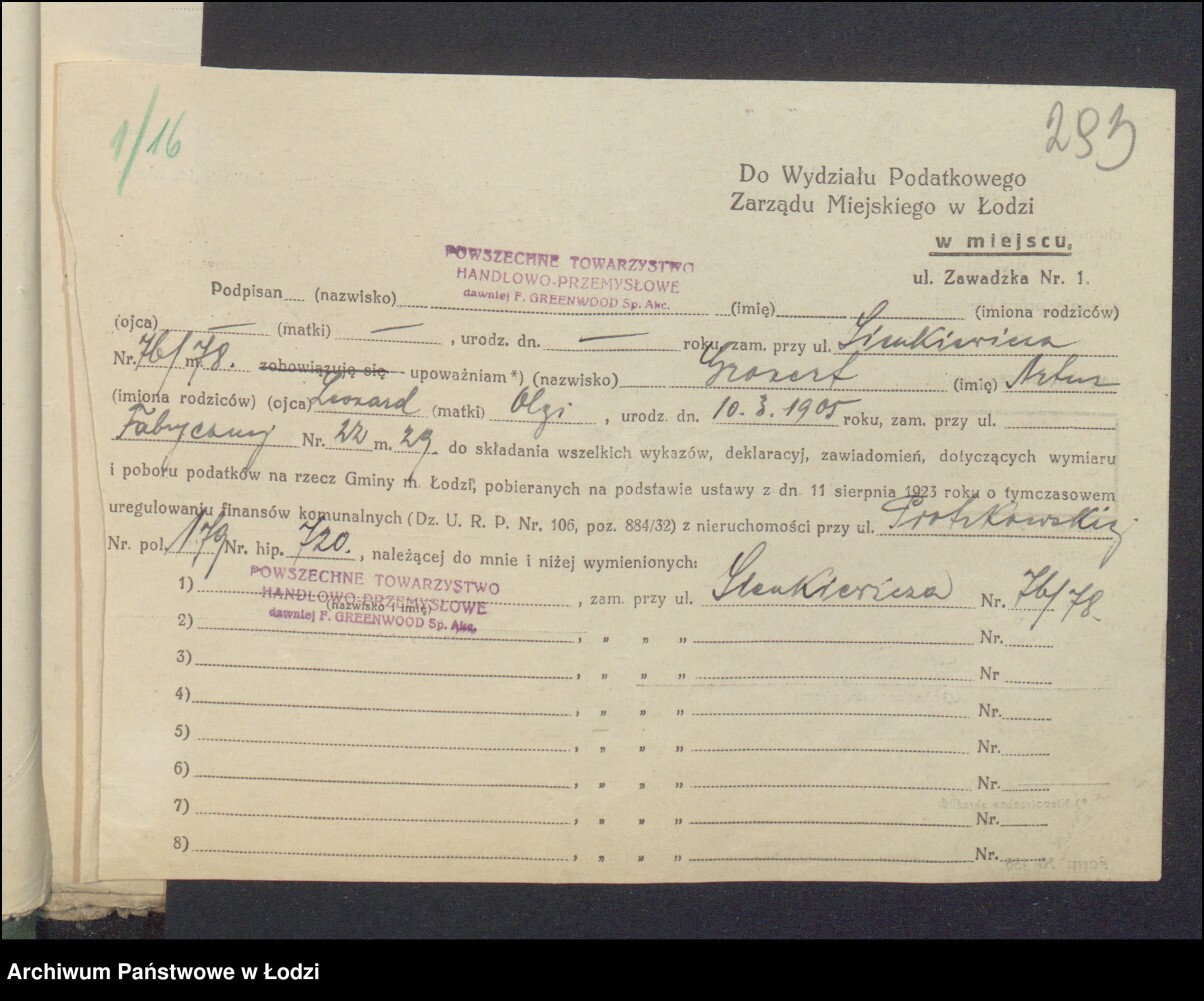 1/16
293
Do Wydziału Podatkowego
Zarządu Miejskiego w Łodzi
w miejscu,
ul. Zawadzka Nr. 1.
POWSZECHNE TOWARZYSTWO
HANDLOWO-PRZEMYSŁOWE
dawniej F. GREENWOOD Sp. Akc.
Podpisan (nazwisko) (imię) (imiona rodziców)
(ojca) — (matki) — , urodz. dn. — roku, zam. przy ul. Sienkiewicza
Nr. 76/78. m. zobowiązuję się upoważniam *) (nazwisko) Growert (imię) Artur
(imiona rodziców) (ojca) Leonard (matki) Olgi , urodz. dn. 10. 3. 1905 roku, zam. przy ul.
Fabrycznej Nr. 22 m. 29. do składania wszelkich wykazów, deklaracyj, zawiadomień, dotyczących wymiaru
i poboru podatków na rzecz Gminy m. Łodzi, pobieranych na podstawie ustawy z dn. 11 sierpnia 1923 roku o tymczasowem
uregulowaniu finansów komunalnych (Dz. U. R. P. Nr. 106, poz. 884/32) z nieruchomości przy ul. Piotrkowskiej
Nr. pol. 179 Nr. hip. 720. , należącej do mnie i niżej wymienionych:
1) POWSZECHNE TOWARZYSTWO
HANDLOWO-PRZEMYSŁOWE
dawniej F. GREENWOOD Sp. Akc.
(nazwisko i imię) , zam. przy ul. Sienkiewicza Nr. 76/78.
2) , „ „ „ Nr.
3) , „ „ „ Nr
4) , „ „ „ Nr.
5) , „ „ „ Nr.
6) , „ „ „ Nr.
7) , „ „ „ Nr.
8) , „ „ „ Nr.
Archiwum Państwowe w Łodzi